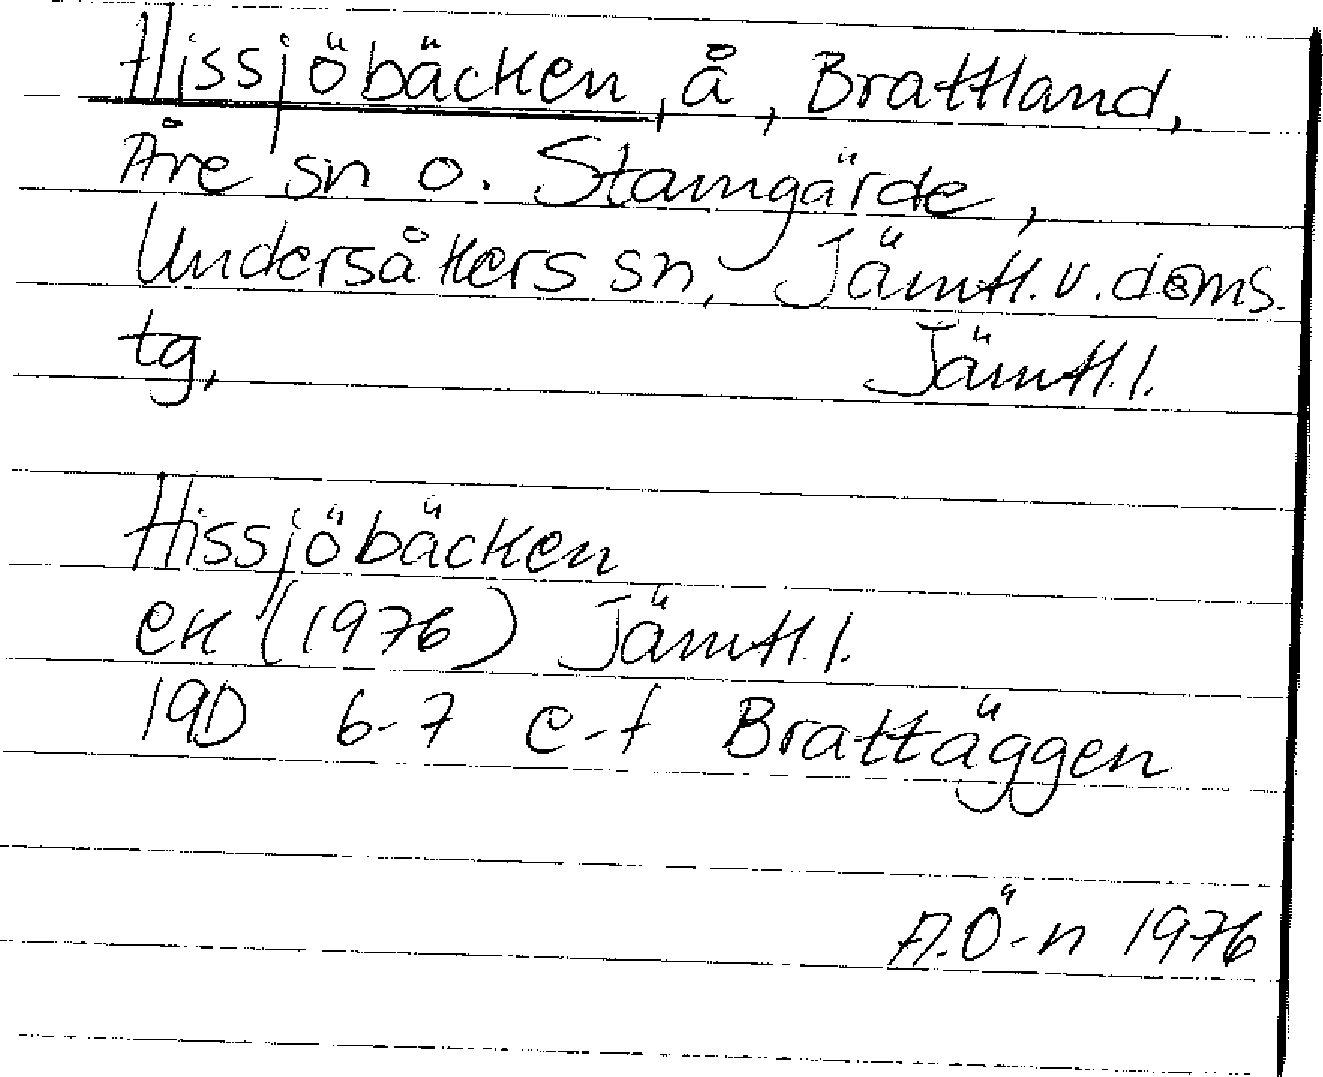 Hissjöbäcken, å, Brattland,
Åre sn o. Stamgärde,
Undersåkers sn, Jämtl. v. doms.
tg, Jämtl. l.
Hissjöbäcken
ek (1976) Jämtl. l.
19D 6-7 e-f Brattäggen
A.Ö-n 1976